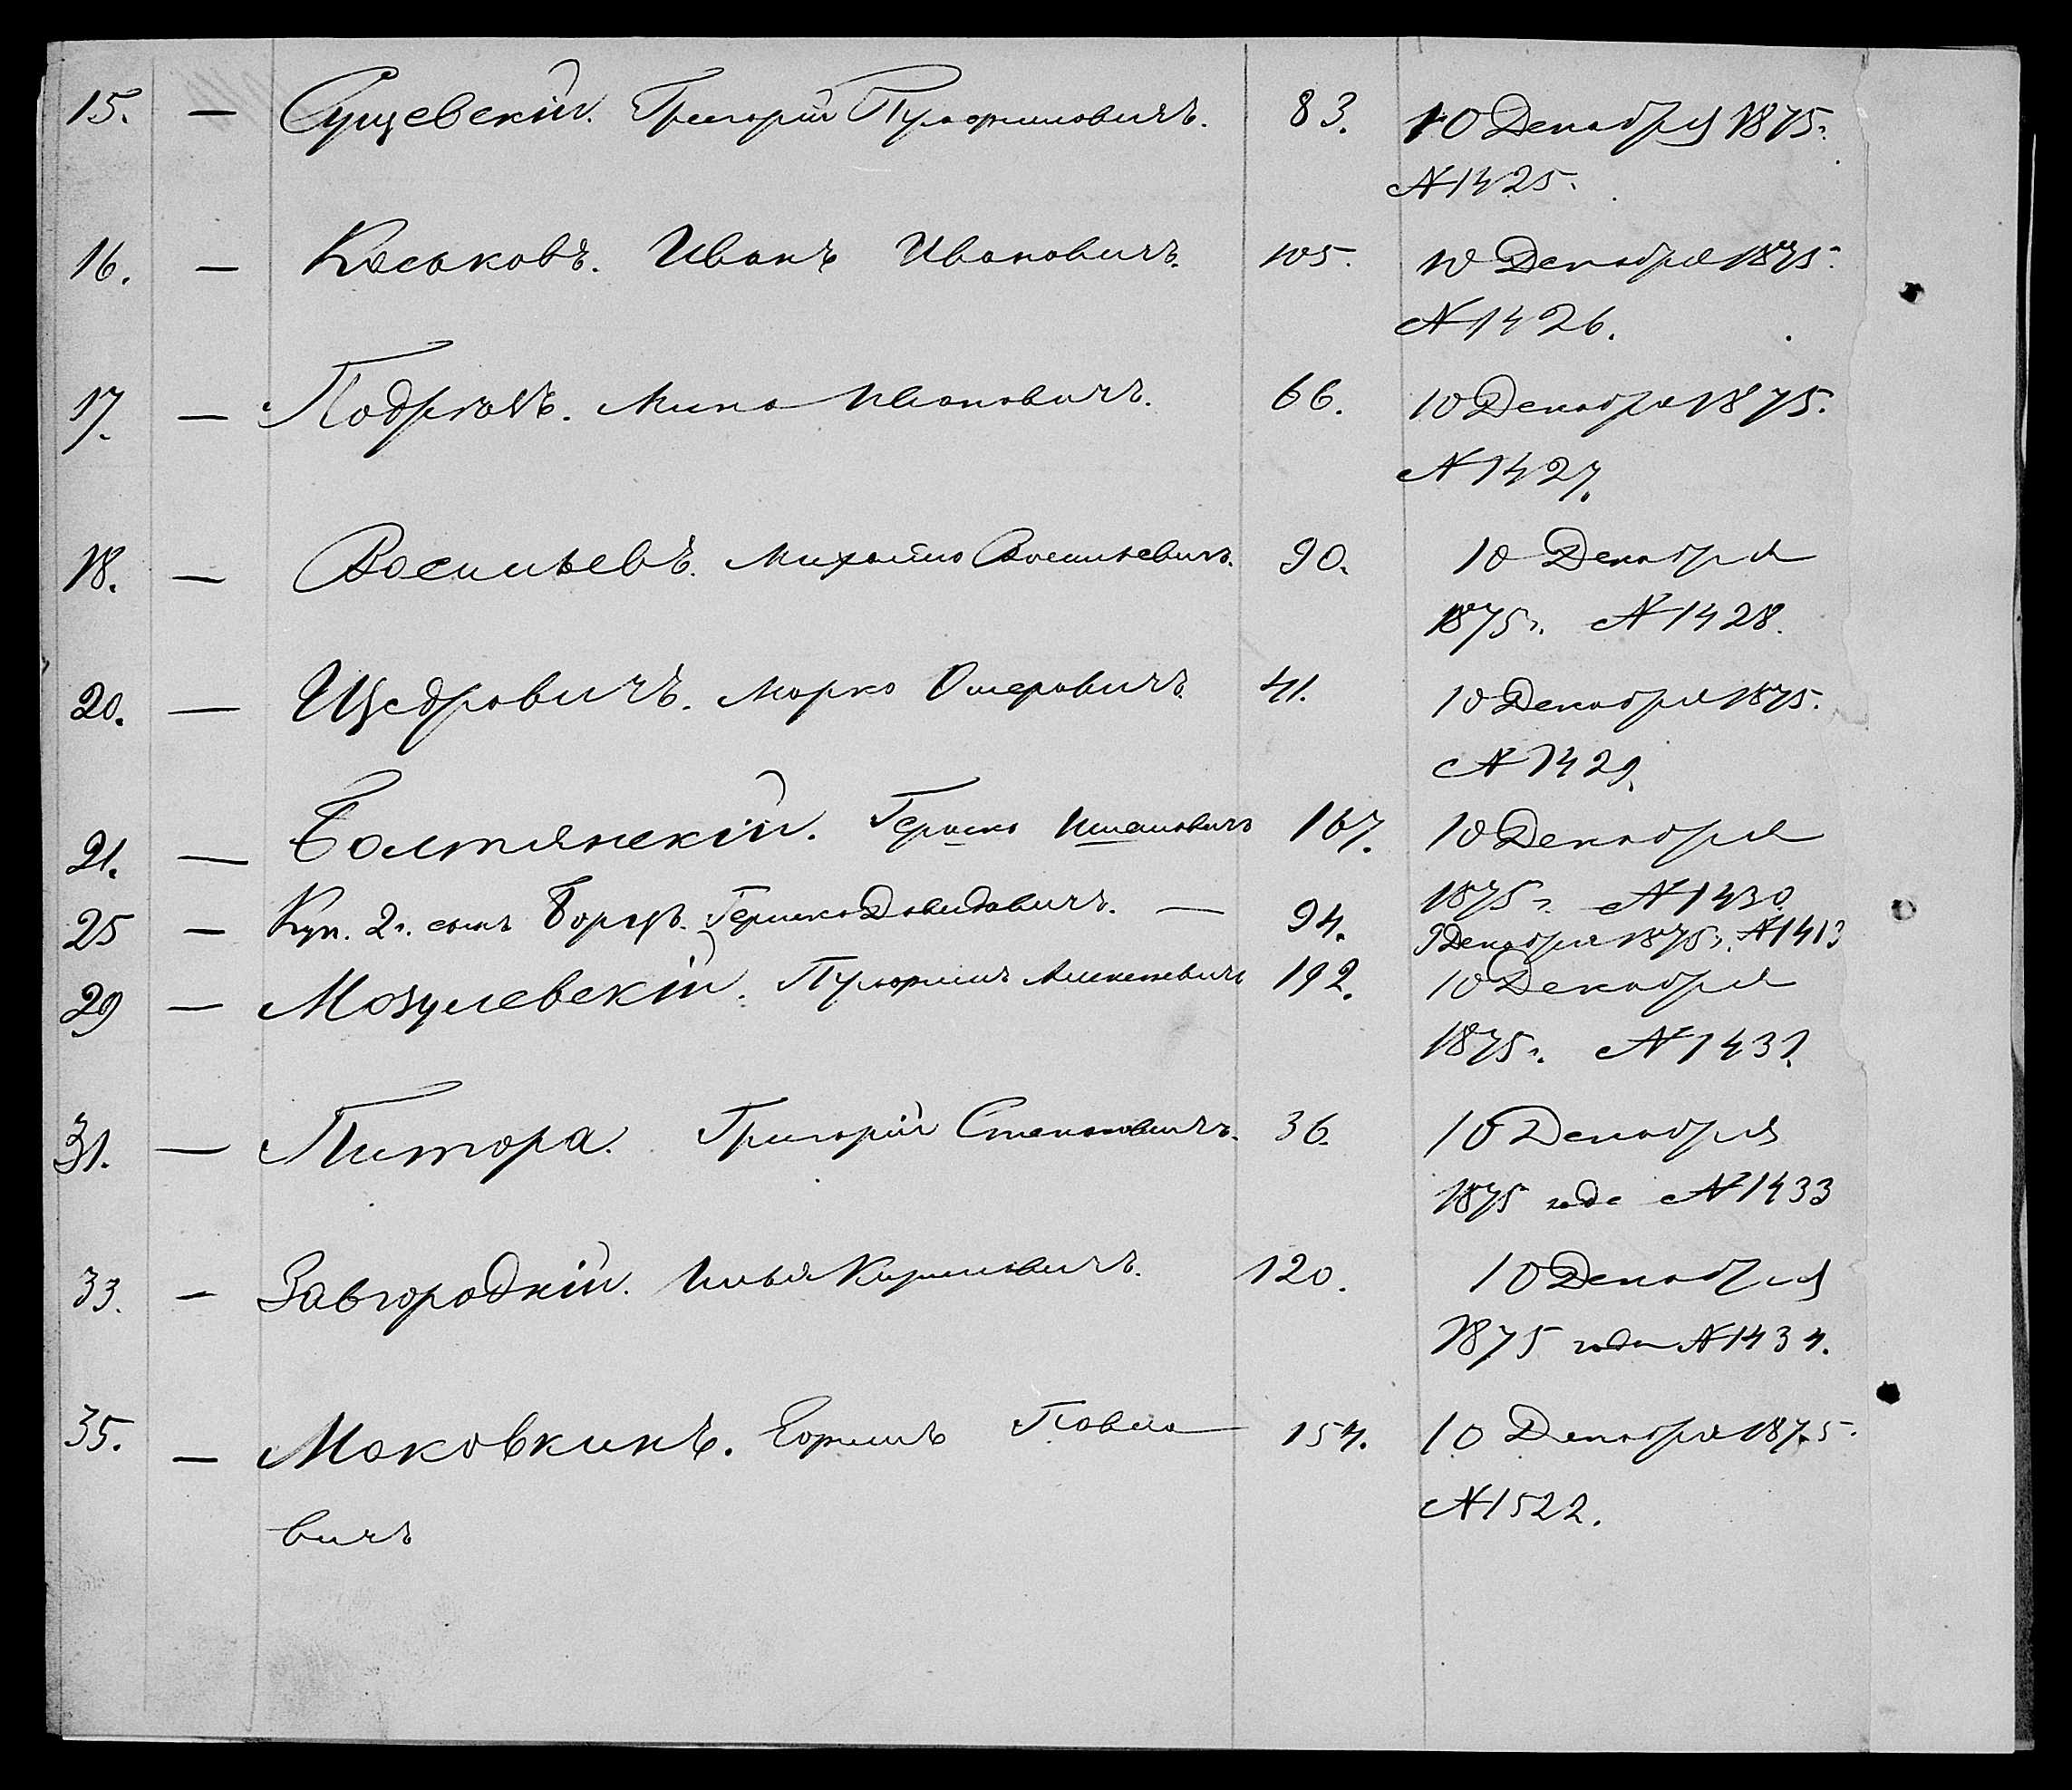 15. — Сущевскій. Григорій Трофимовичъ. 83. 10 Декабря 1875.
№ 1425.
16. — Каськовъ. Иванъ Ивановичъ. 105. 10 Декабря 1875.
№ 1426.
17. — Мина Ивановичъ. 66. 10 Декабря 1875.
№ 1427.
18. — Васильевъ. Михайло Васильевичъ. 90. 10 Декабря
1875 г. № 1428.
20. — Щедровичъ. Марко Омеровичъ. 41. 10 Декабря 1875.
№ 1429.
21. — Балтянскій. Гершко 167. 10 Декабря
1875 г. № 1430.
25 — Куп. 2 г. сынъ Борцъ. Гершко Давидовичъ. — 94. 9 Декабря 1875 г. № 1413
29 — Мазулевскій. Трофимъ Алексѣевичъ 192. 10 Декабря
1875 г. № 1431.
31. — Питора. Григорій Степановичъ. 36. 10 Декабря
1875 года № 1433
33. — Завгородній. Илья Кириловичъ. 120. 10 Декабря
1875 года № 1434.
35. — Маковкинъ. Ефимъ Павло 154. 10 Декабря 1875.
№ 1522.
вичъ